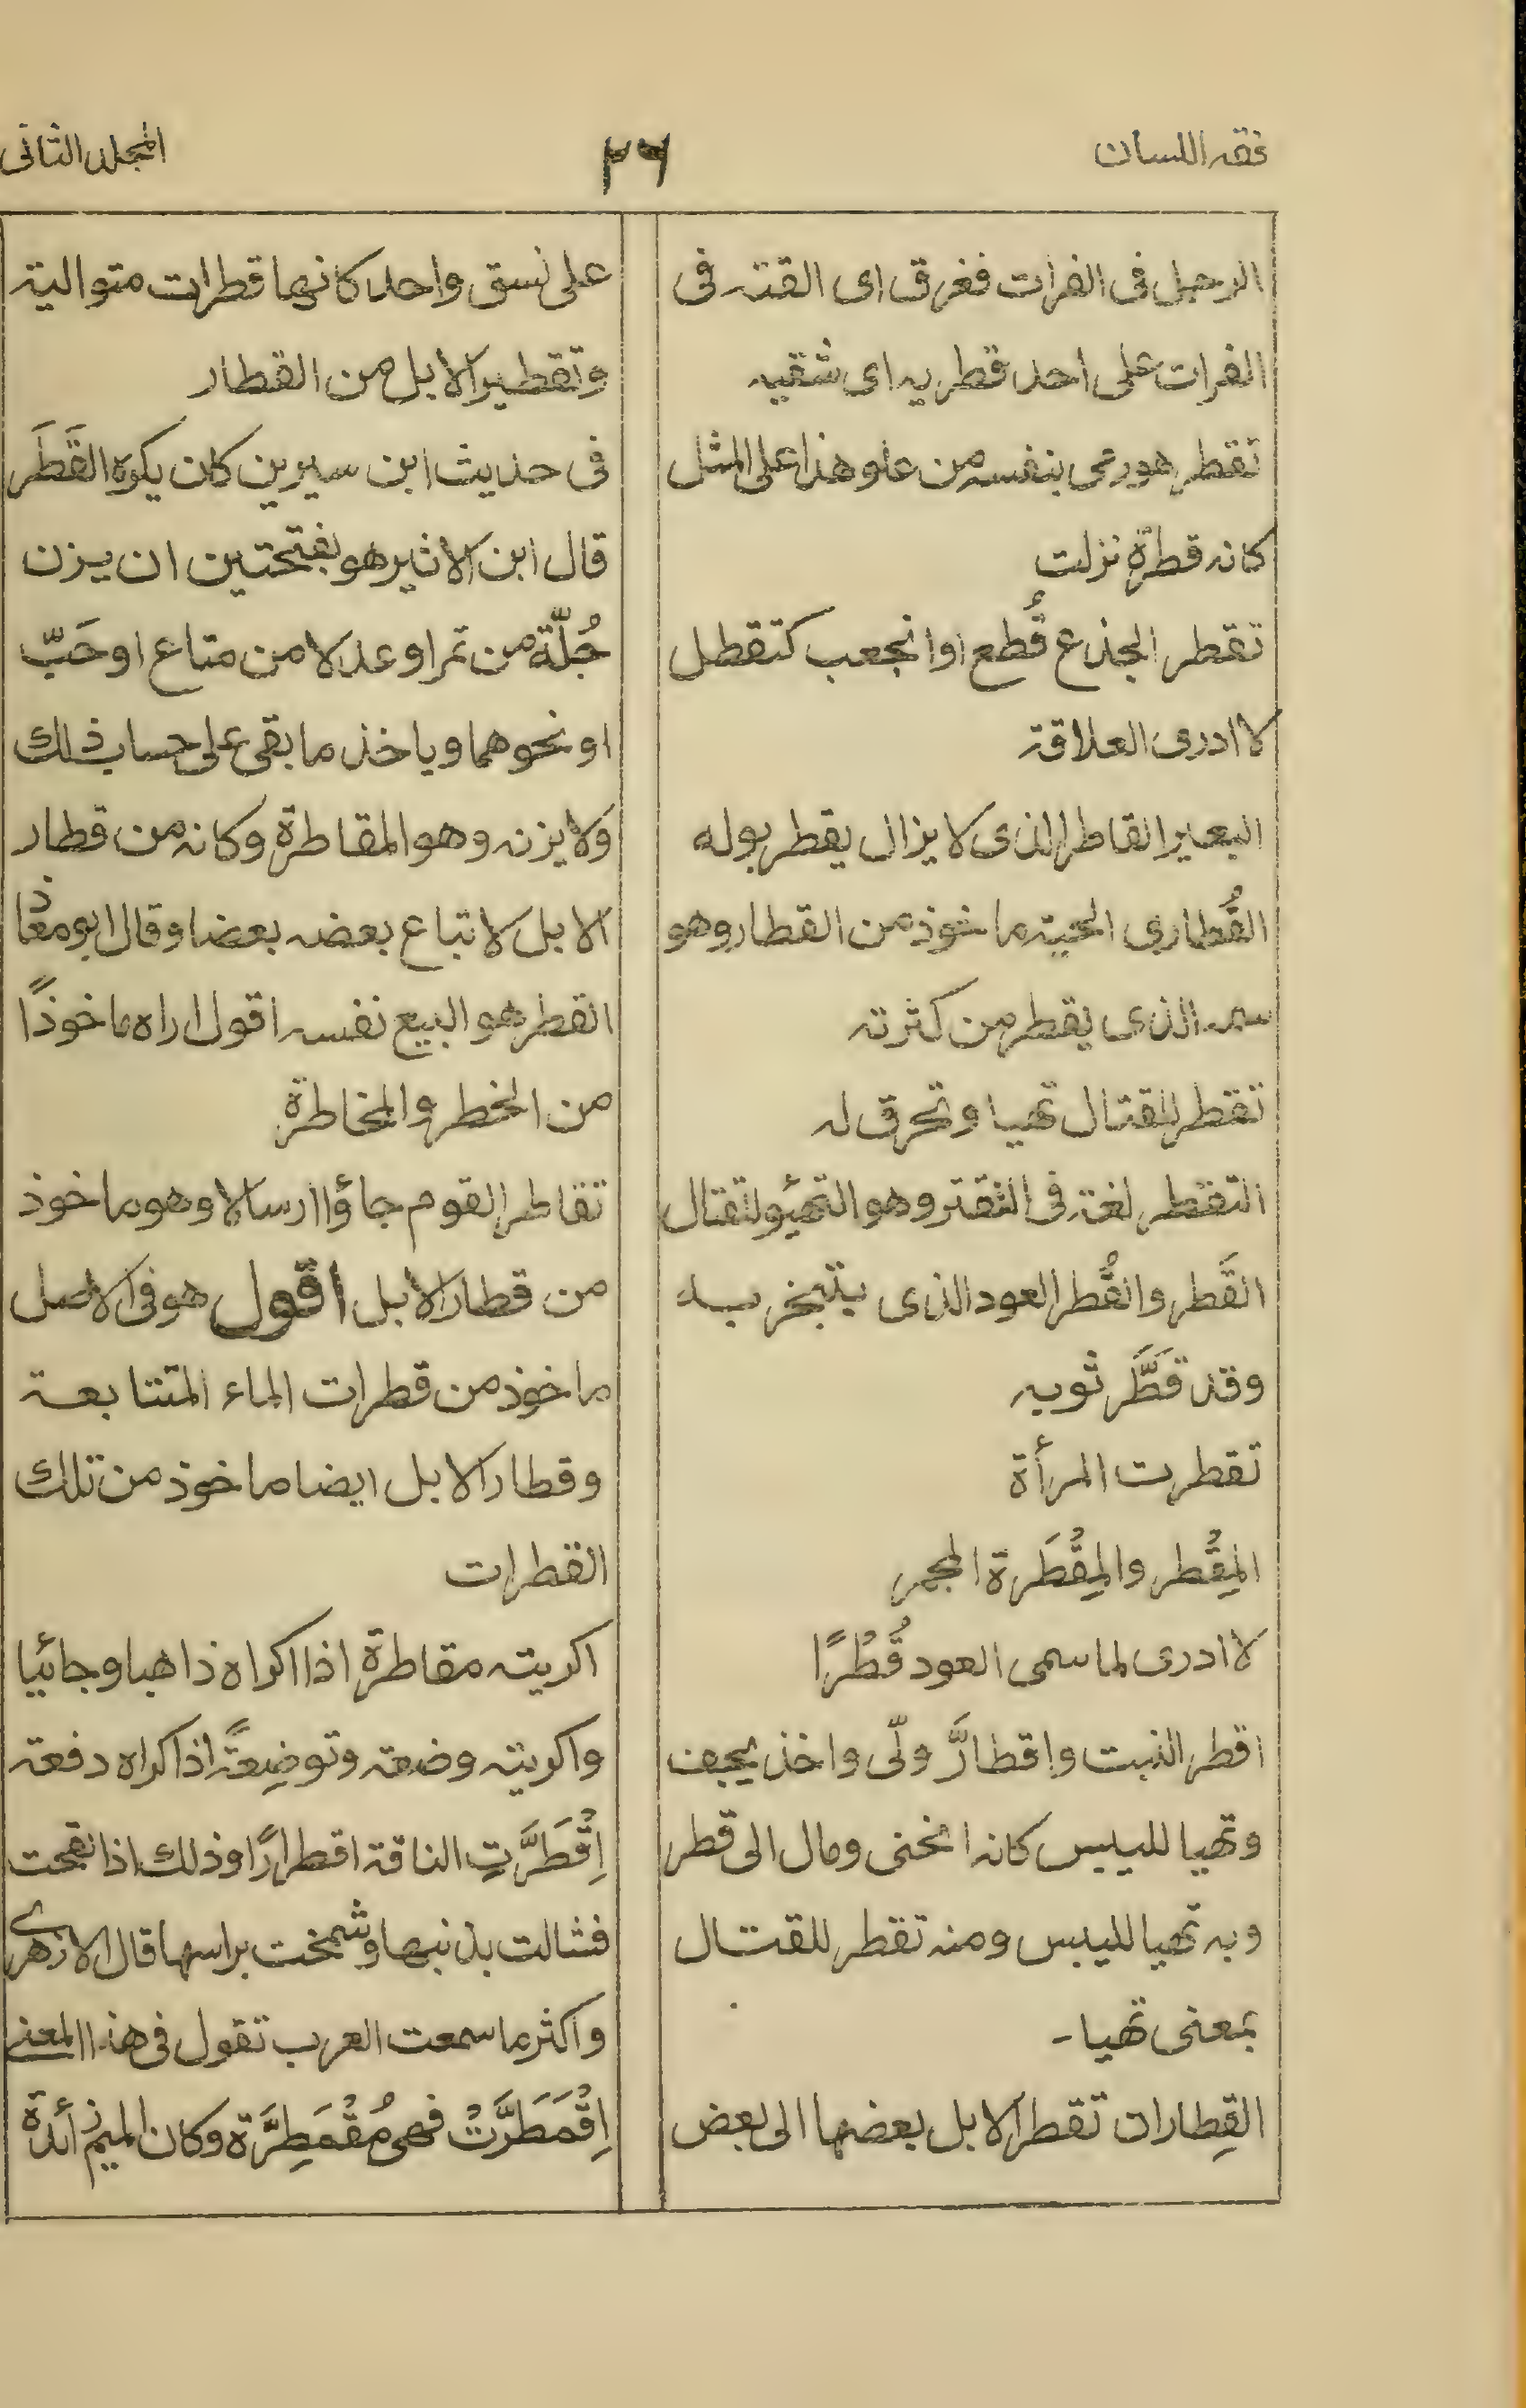 فقه اللسان
٢٦
المجلد الثانى
الرجل فى الفرات فغرق اى القته فى
الفرات على احد قطريه اى شقيه
تقطر هو رمى بنفسه من علو هذا على المثل
كانه قطرة نزلت
تقطر الجذع قُطع او انجعب كتقطل
لا ادرى العلاقة
البعير القاطر الذى لا يزال يقطر بوله
القُطارى الحية ماخوذ من القطار وهو
سمه الذى يقطر من كثرته
تقطر للقتال تهيا وتحرق له
التقطر لغة فى التقتر وهو التهيؤ للقتال
القَطر والقُطر العود الذى يتبخر به
وقد قطَّر ثوبه
تقطرت المرأة
المِقْطر والمِقْطَرة المجمر
لا ادرى لما سمى العود قُطْرًا
اقطر النبت واقطارَّ ولّى واخذ يجف
وتهيا لليبس كانه انحنى ومال الى قطر
وبه تهيا لليبس ومنه تقطر للقتال
بمعنى تهيا -
القِطاران تقطر الابل بعضها الى بعض
على نسق واحد كانها قطرات متوالية
وتقطير الابل من القطار
فى حديث ابن سيرين كان يكره القَطَر
قال ابن الاثير هو بفتحتين ان يزن
جُلّة من تمر او عدلا من متاع او حَبّ
او نحوهما وياخذ ما بقى على حساب ذلك
ولا يزنه وهو المقاطرة وكانه من قطار
الابل لاتباع بعضه بعضا وقال ابو معاذ
القطر هو البيع نفسه اقول اراه ماخوذًا
من الخطر والمخاطرة
تقاطر القوم جاؤا ارسالا وهو ماخوذ
من قطار الابل اقول هو فى الاصل
ماخوذ من قطرات الماء المتتابعة
وقطار الابل ايضا ماخوذ من تلك
القطرات
اكريته مقاطرة اذا اكراه ذاهبا وجائيا
واكريته وضعة وتوضِعةً اذا اكراه دفعة
اِقْطَرَّتِ الناقة اقطرارًا وذلك اذا لقحت
فشالت بذنبها وشمخت براسها قال الازهرى
واكثر ما سمعت العرب تقول فى هذا المعنى
اِقْمَطَرَّتْ فهى مُقْمَطِرَّة وكان الميم زائدة